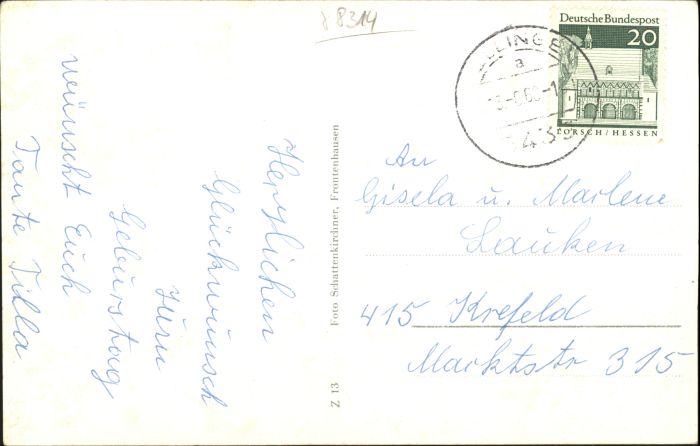 8314
Deutsche Bundespost
20
LORSCH / HESSEN
a
Herzlichen
Glückwunsch
zum
Geburtstag
wünscht Euch
Tante Tilla
Foto Schattenkirchner, Frontenhausen
Z 13
An
Gisela u. Marlene
Lauken
415 Krefeld
Marktstr 315